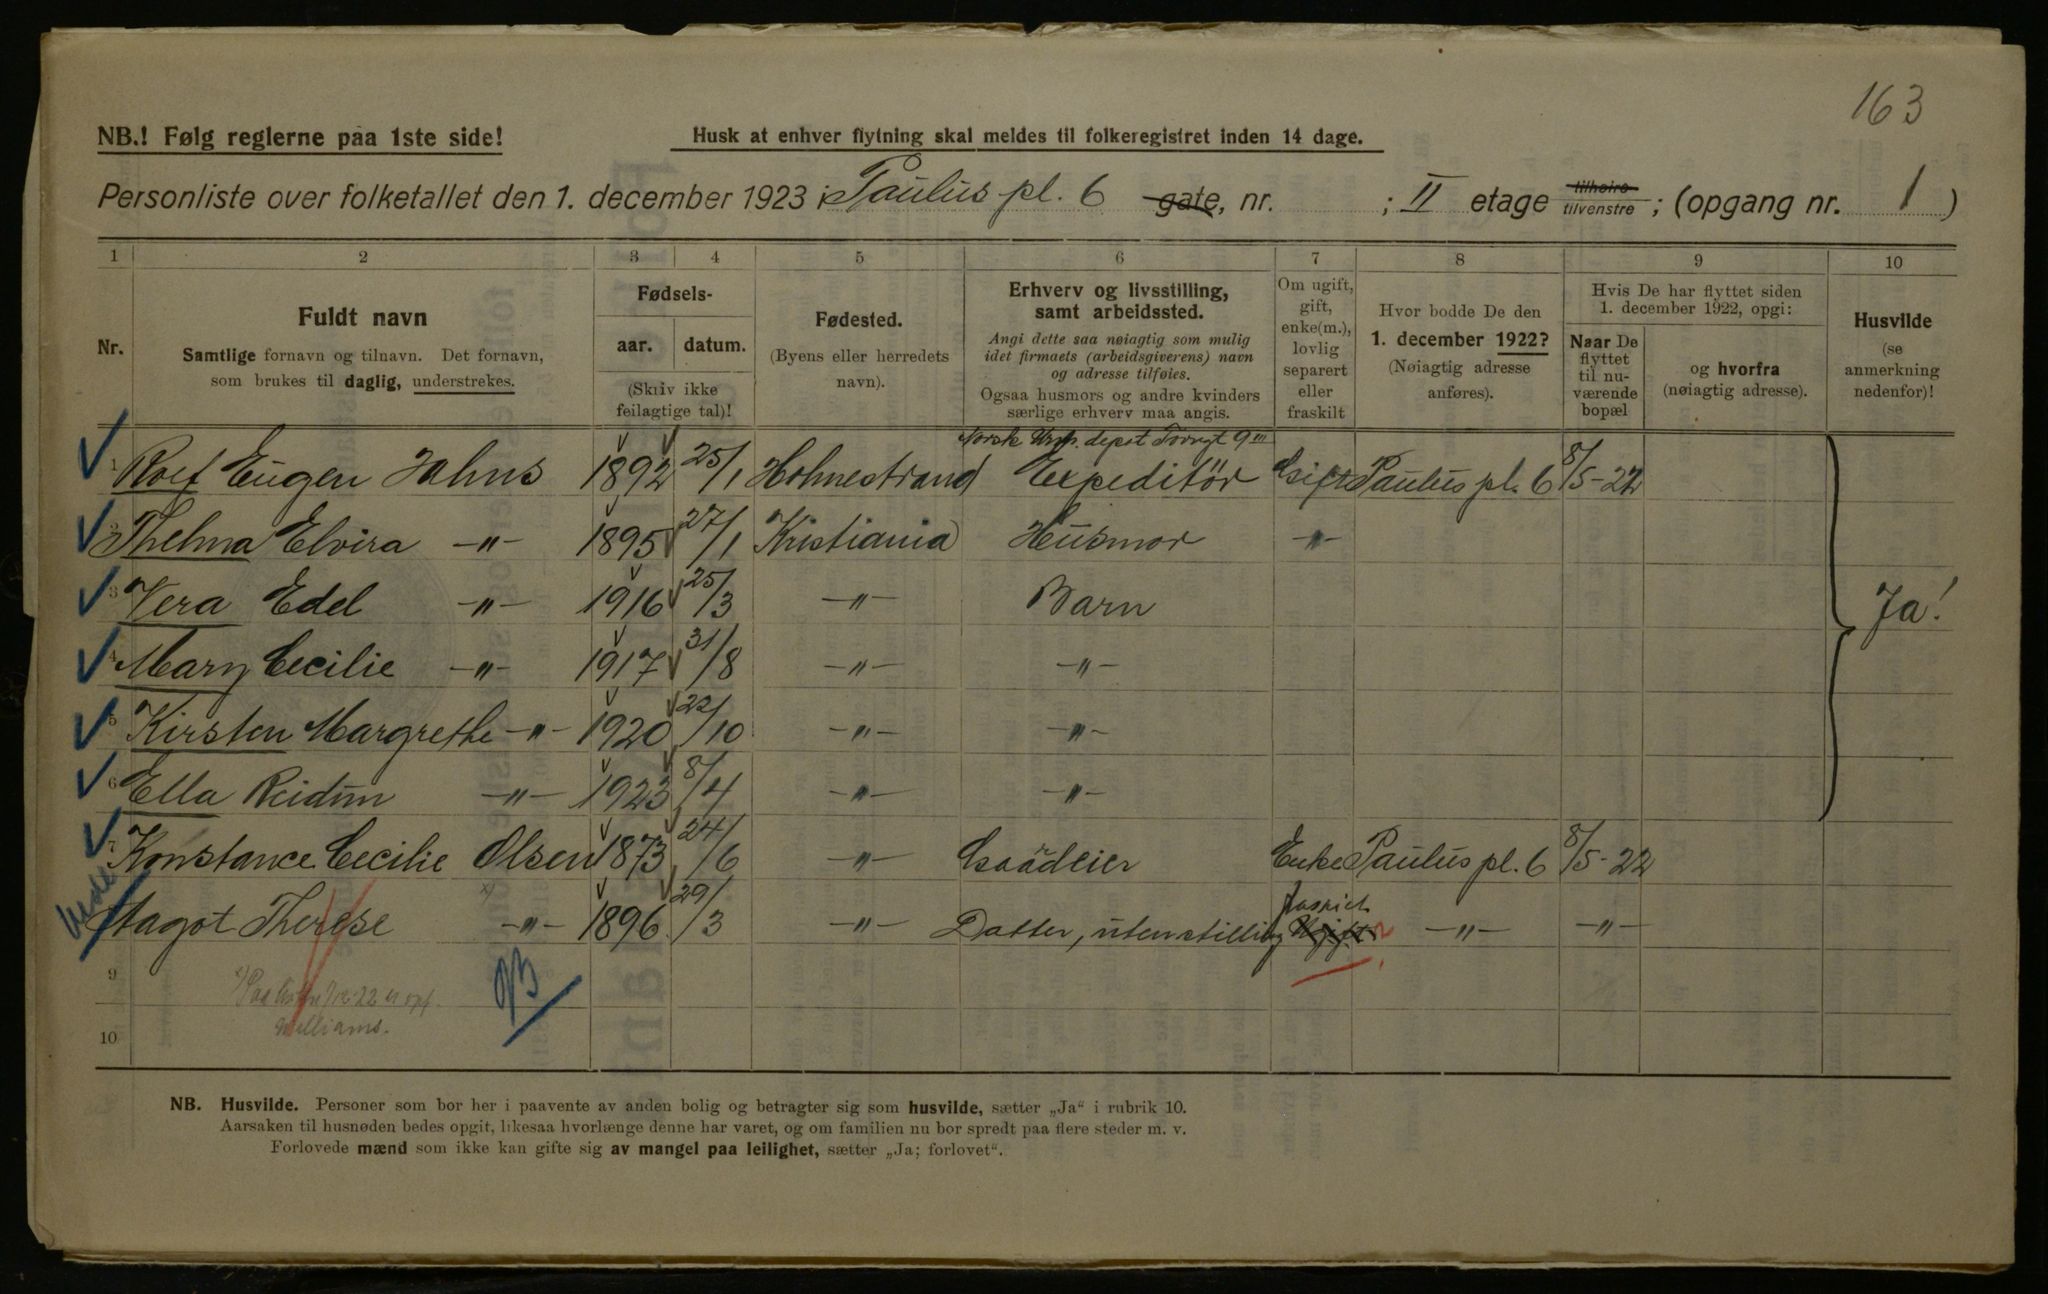 163
NB.! Følg reglerne paa 1ste side!
Husk at enhver flytning skal meldes til folkeregistret inden 14 dage.
Personliste over folketallet den 1. december 1923 i Paulus pl. 6 gate, nr. ; II etage tilhøire tilvenstre ; (opgang nr. 1 )
1 2 3 4 5 6 7 8 9 10
Nr.
Fuldt navn
Samtlige fornavn og tilnavn. Det fornavn,
som brukes til daglig, understrekes.
Fødsels-
aar. datum.
(Skriv ikke
feilagtige tal)!
Fødested.
(Byens eller herredets
navn).
Erhverv og livsstilling,
samt arbeidssted.
Angi dette saa nøiagtig som mulig
idet firmaets (arbeidsgiverens) navn
og adresse tilføies.
Ogsaa husmors og andre kvinders
særlige erhverv maa angis.
Om ugift,
gift,
enke(m.),
lovlig
separert
eller
fraskilt
Hvor bodde De den
1. december 1922?
(Nøiagtig adresse
anføres).
Hvis De har flyttet siden
1. december 1922, opgi:
Naar De
flyttet
til nu-
værende
bopæl
og hvorfra
(nøiagtig adresse).
Husvilde
(se
anmerkning
nedenfor)!
Norsk depot Torvgt 9
1 Rolf Eugen Jahns 1892 25/1 Holmestrand Expeditör Gift Paulus pl. 6 8/5-22
2 Thelma Elvira -"- 1895 27/1 Kristiania Husmor -"-
3 Vera Edel -"- 1916 25/3 -"- Barn
Ja!
4 Mary Cecilie -"- 1917 31/8 -"- -"-
5 Kirsten Margrethe -"- 1920 22/10 -"- -"-
6 Ella Reidun -"- 1923 8/4 -"- -"-
7 Konstance Cecilie Olsen 1873 24/6 -"- Gaardeier Enke Paulus pl. 6 8/5-22
Aagot Therese x) -"- 1896 29/3 -"- Datter, uten stilling Ugift ? -"- -"-
9 x) Paa 22 er opf.
Williams.
10
NB. Husvilde. Personer som bor her i paavente av anden bolig og betragter sig som husvilde, sætter „Ja" i rubrik 10.
Aarsaken til husnøden bedes opgit, likesaa hvorlænge denne har varet, og om familien nu bor spredt paa flere steder m. v.
Forlovede mænd som ikke kan gifte sig av mangel paa leilighet, sætter „Ja; forlovet".